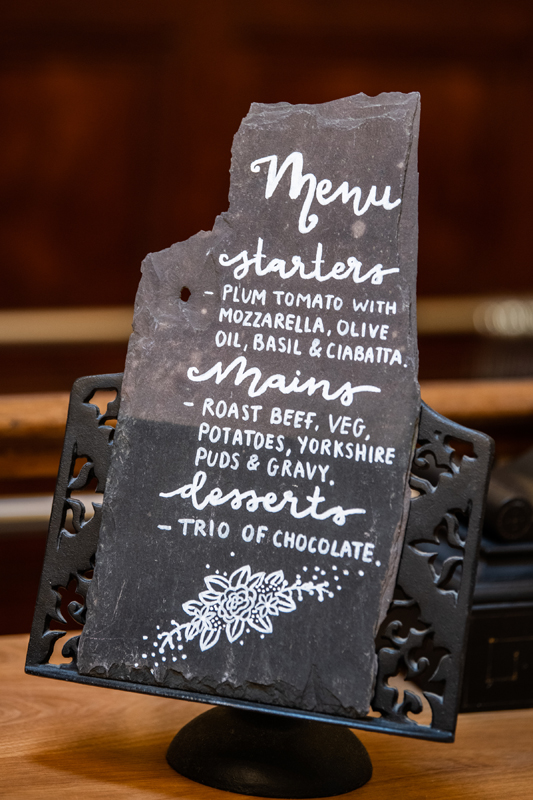 Menu
starters
- PLUM TOMATO WITH
MOZZARELLA, OLIVE
OIL, BASIL & CIABATTA.
Mains
- ROAST BEEF, VEG,
POTATOES, YORKSHIRE
PUDS & GRAVY.
desserts
- TRIO OF CHOCOLATE.